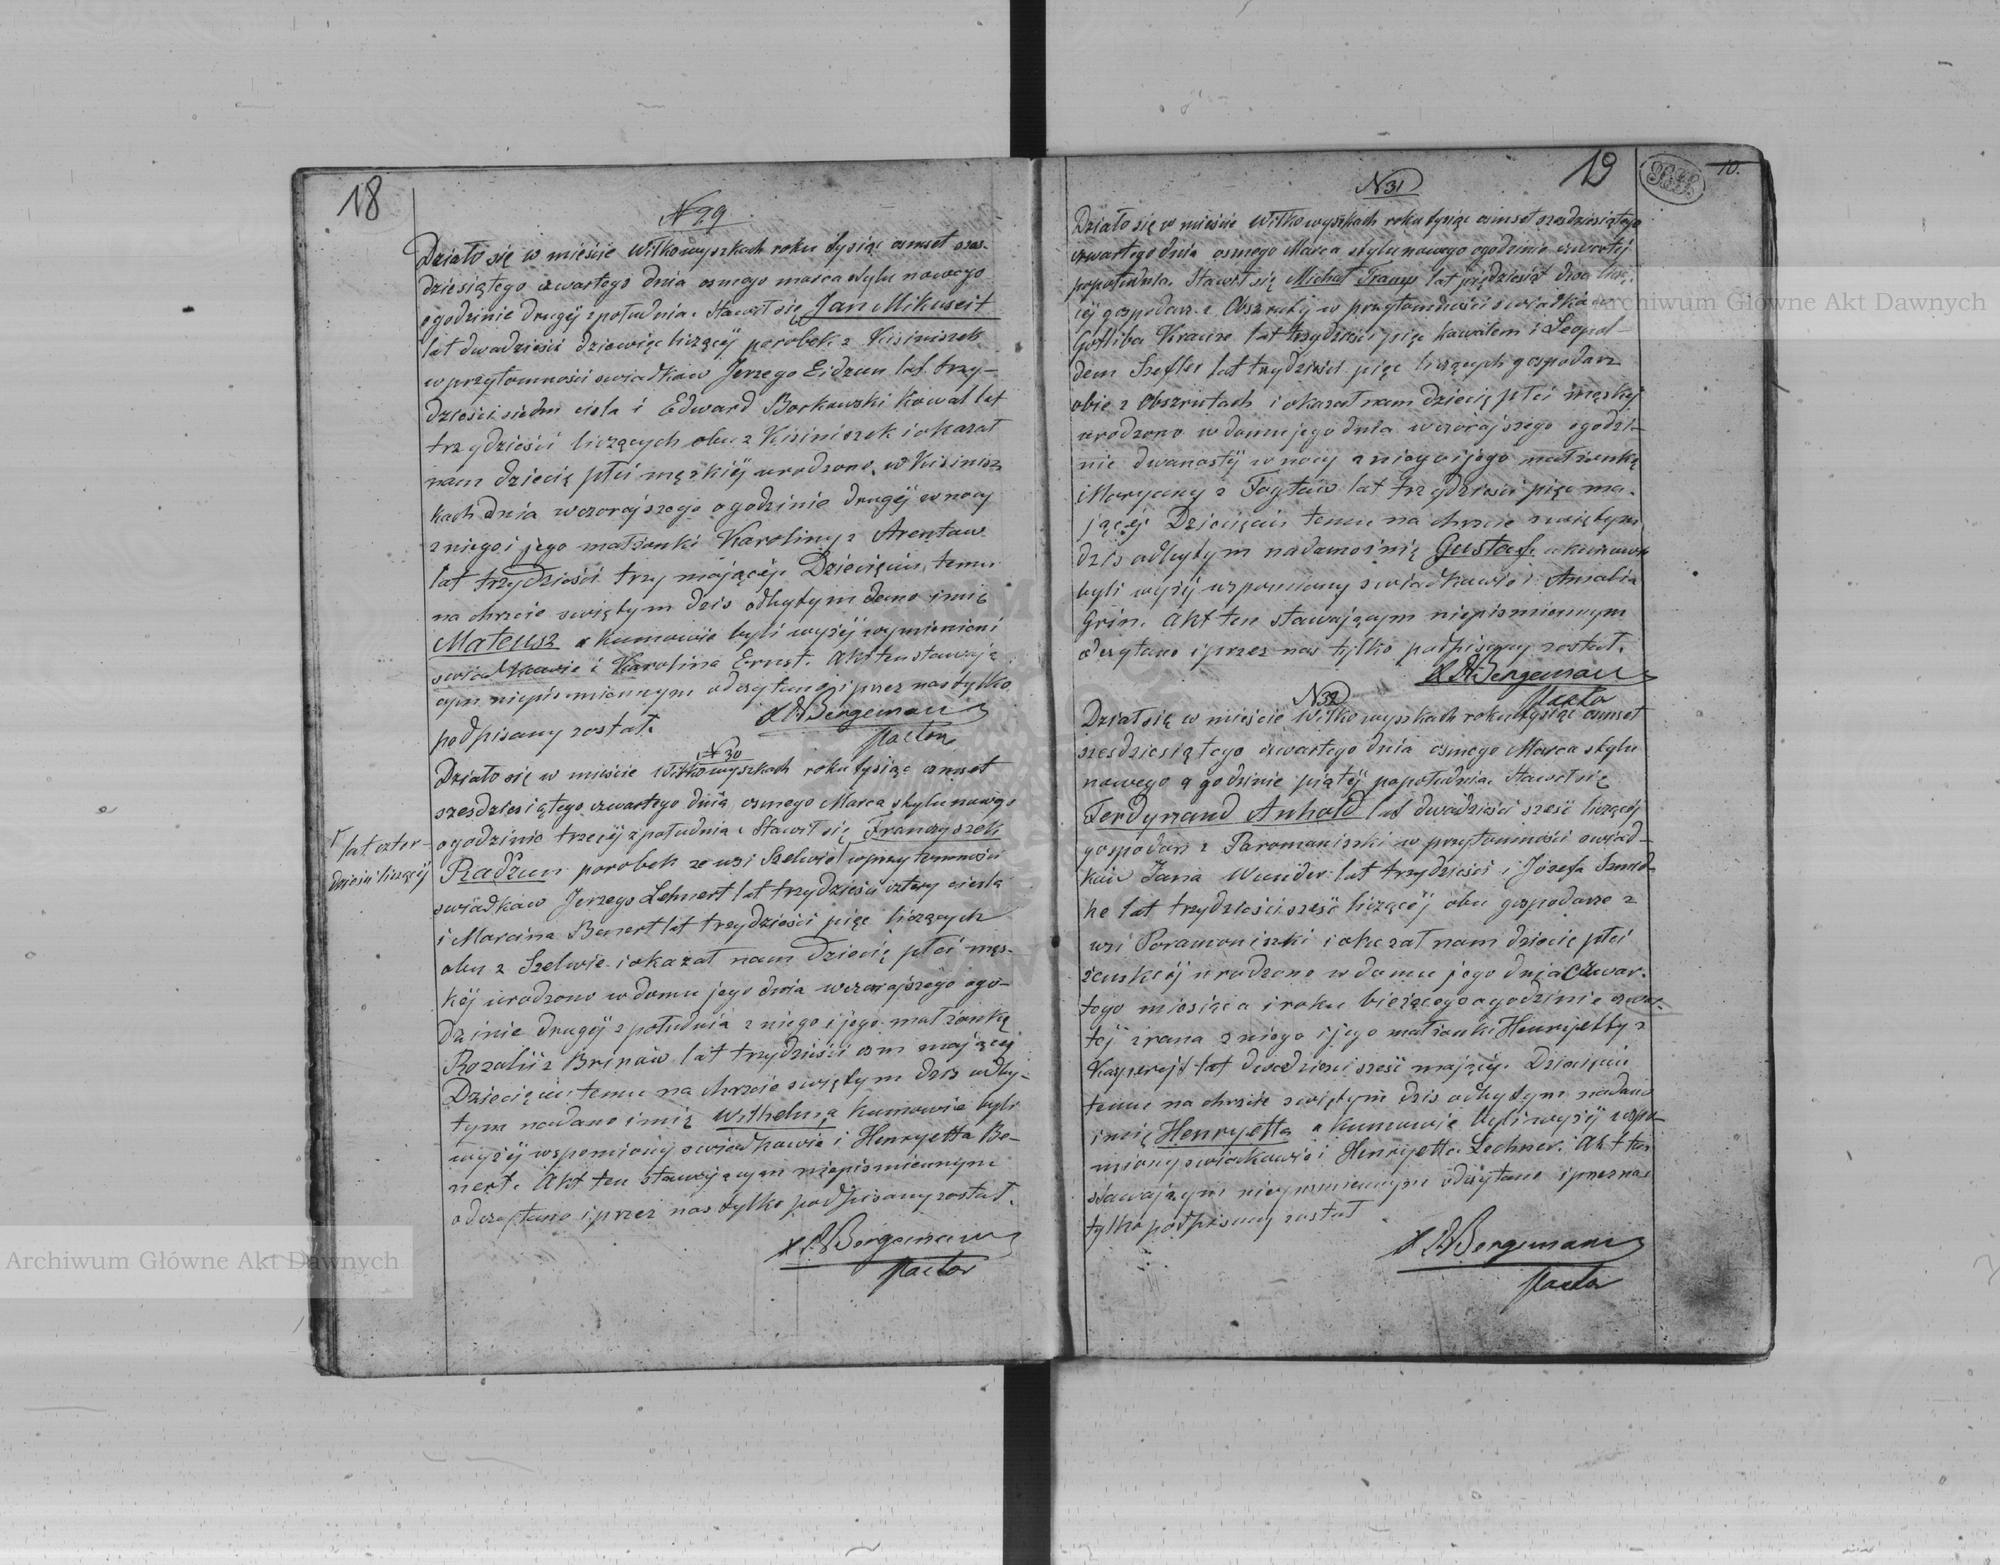 18
N 29
Działo się w mieście Wiłkowyszkach roku tysiąc osmset szes-
dziesiątego czwartego dnia osmego marca stylu nowego
o godzinie drugiej z południa. Stawił się Jan Mikuseit
lat dwadzieścia dziewięć liczący porobek z Kisiniszek
w przytomności swiadkow Jerzego Eidzun lat trzy-
dzieści siedm ciela i Edward Borkowski Kowal lat
trzydzieści liczących obu z Kisiniszek i okazał
nam dziecię płci męzkiej urodzone w Kisinisz
kach dnia wczorajszego o godzinie drugiej w nocy
z niego i jego małżonki Karoliny z Arentow
lat trzydzieści trzy mającej. Dziecięciu temu
na chrzcie swiętym dzis odbytym dano imię
Mateusz a kumowie byli wyżej wymienieni
swiadkowie i Karolina Ernst. Akt ten stawają
cym niepismiennym odczytano i przez nas tylko
podpisany został.
X A Bergemann
Pastor
N 30
Działo się w mieście Wiłkowyszkach roku tysiąc osmset
szesdziesiątego czwartego dnia osmego Marca stylu nowego
o godzinie trzeciej z południa. Stawił się Franciszek
Radzun porobek ze wsi Szelwie w przytomności
lat czter-
dzieści liczący
swiadkow Jerzego Lehnert lat trzydzieści cztery ciesla
i Marcina Benert lat trzydzieści pięć liczących
obu z Szelwie i okazał nam dziecię płci męs-
kiej urodzone w domu jego dnia wczorajszego ogo-
dzinie drugiej z południa z niego i jego małżonką
Rozalii z Brinow lat trzydzieści osm mającej
Dziecięciu temu na chrzcie swiętym dzis odby-
tym nadano imię Wilhelm, a kumowie byli
wyżej wspomiony swiadkowie i Henryetta Be-
nert. Akt ten stawającym niepismiennym
odczytano i przez nas tylko podpisany został.
X A Bergemann
Pastor
19
10.
N 31
Działo się w mieście Wiłkowyszkach roku tysiąc osmset szesdziesiątego
czwartego dnia osmego Marca stylu nowego o godzinie czwartej
popołudniu. Stawił się Michał lat pięćdziesiąt dwa licz
cy gospodarz z Obszrut w przytomności swiadkow
Gotliba Krauze lat trzydzieści pięć kowalem i Leopol-
dem Szefler lat trzydzieści pięć liczących gospodarz
obie z Obszrutach i okazał nam dziecię płci męskiej
urodzone w domu jego dnia wczorajszego ogodzi-
nie dwanastej w nocy z niego i jego małżonką
Maryanny z lat trzydzieści pięć ma-
jącej. Dziecięciu temu na chrzcie swiętym
dzis odbytym nadano imię Gustaf. a kumowie
byli wyżej wspomiony swiadkowie i Amalia
Grin. Akt ten stawającym niepismiennym
odczytano i przez nas tylko podpisany został.
X A Bergemann
Pastor
N 32
Dział się w mieście Wiłkowyszkach roku tysiąc osmset
szesdziesiątego czwartego dnia osmego Marca stylu
nowego o godzinie piątej popołudniu. Stawił się
Ferdynand Anhold lat dwadzieścia sześć liczący
gospodarz z Paromaniszki w przytomności swiad-
kow Jana Wunder lat trzydzieści i Józefa Szmid-
ke lat trzydzieści sześć liczącej obu gospodarze z
wsi Poramoniszki i okazał nam dziecię płci
żenskiej urodzone w domu jego dnia czwar-
tego miesiąca i roku bieżącego o godzinie czwar-
tej z rana z niego i jego małżonki Henryetty z
Kasperojt lat dwadzieścia sześć mającej. Dziecięciu
temu na chrzcie swiętym dzis odbytym nadano
imię Henryetta a kumowie byli wyżej wspo-
miony swiadkowie i Henryetta Lechner. Akt ten
stawającym niepismiennym odczytano i przez nas
tylko podpisany został
X A Bergemann
Pastor
Archiwum Główne Akt Dawnych
Archiwum Główne Akt Dawnych